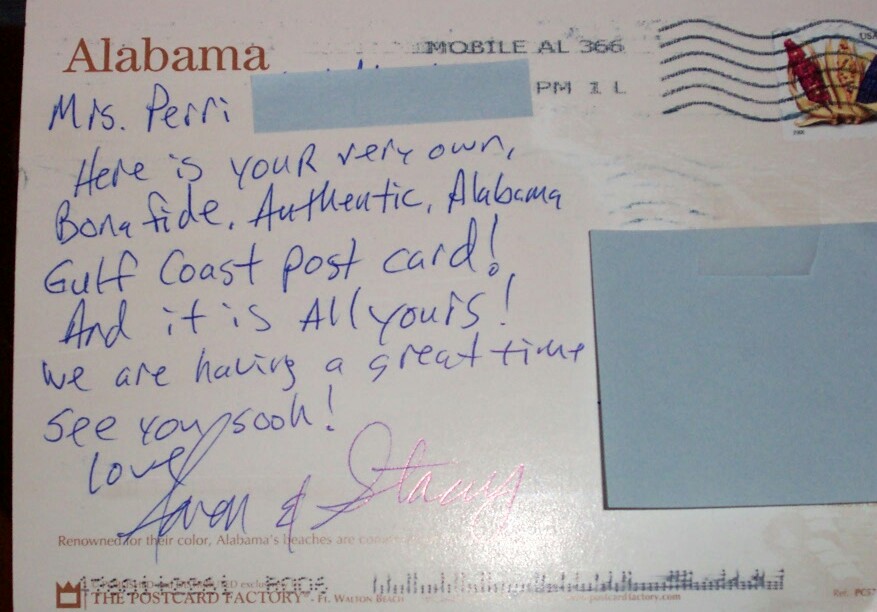 Alabama
MOBILE AL 366
PM 1 L
USA
Mrs. Perri
Here is your very own,
Bona fide, Authentic, Alabama
Gulf Coast post card!
And it is All yours!
we are having a great time
see you soon!
love
Aaron & Stacey
Renowned for their color, Alabama's beaches are
THE POSTCARD FACTORY - Ft. Walton Beach
Ref.